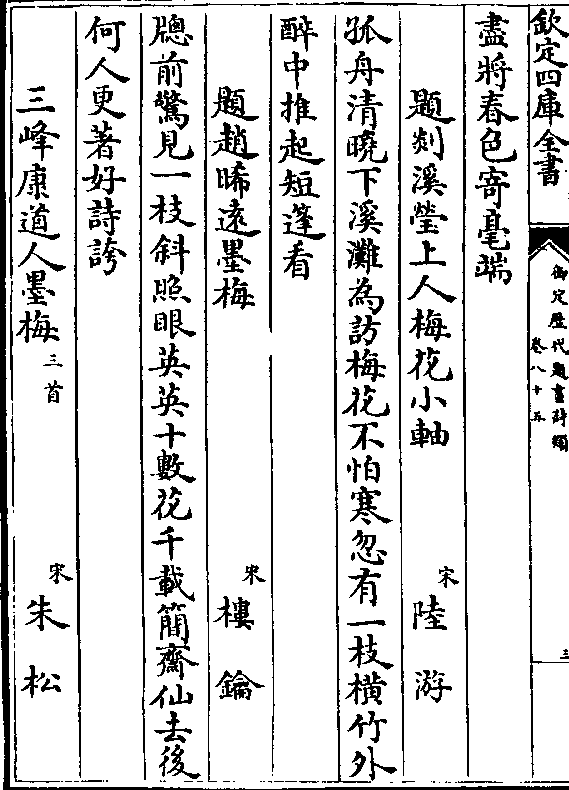 欽定四庫全書
御定歷代題畫詩類
卷八十五
三
盡將春色寄毫端
題剡溪瑩上人梅花小軸
宋
陸游
孤舟清曉下溪灘為訪梅花不怕寒忽有一枝橫竹外
醉中推起短蓬看
題趙晞遠墨梅
宋
樓鑰
牕前驚見一枝斜照眼英英十數花千載簡齋仙去後
何人更著好詩誇
三峰康道人墨梅
三首
宋
朱松